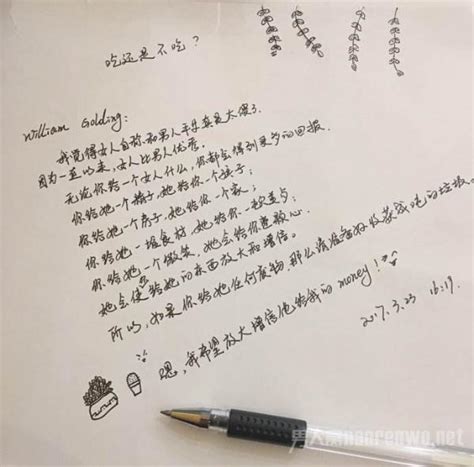 吃还是不吃？
William Golding:
我觉得女人自称和男人平等真是太傻了.
因为一直以来,女人比男人优秀.
无论你给一个女人什么,你都会得到更多的回报.
你给她一个精子,她给你一个孩子;
你给她一个房子,她给你一个家;
你给她一堆食材,她给你一顿美歺;
你给她一个微笑,她会给你整颗心.
她会使给她的东西放大和增倍。
所以,如果你给她任何废物,那么请准备好收获成吨的垃圾。
嗯,我希望放大增倍他给我的money!
2017.3.23 16:19.
nanrenwo.net